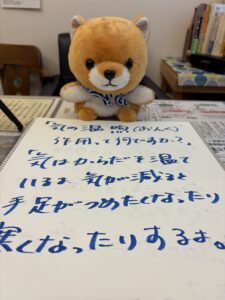 「気の温煦(おんく)
作用って何ですか?」
「気はからだを温て
いるよ 気が減ると
手足がつめたくなったり
寒くなったりするよ。